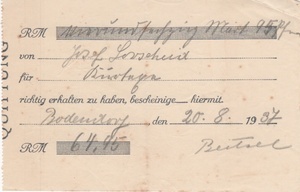 QUITTUNG
RM vierundsechzig Mark 95 Pf
von Josef Lorscheid
für Kurtaxe
richtig erhalten zu haben, bescheinige hiermit
Bodendorf, den 20. 8. 1937
RM 64,95